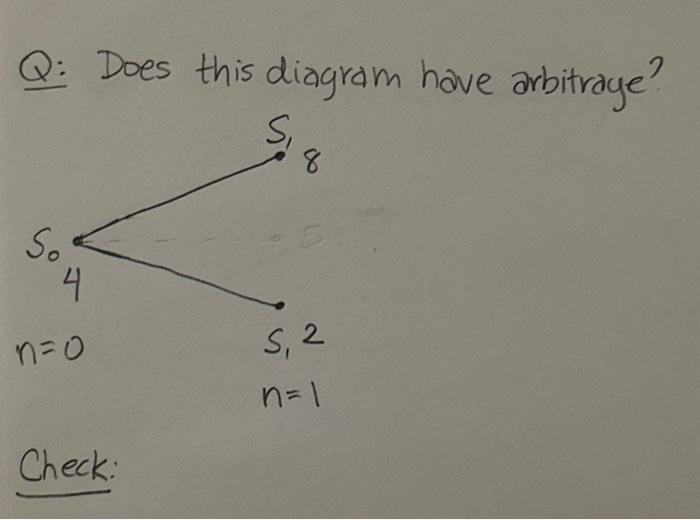 Q: Does this diagram have arbitrage?
S₁
8
S₀
5
4
S₁ 2
n=0
n=1
Check: